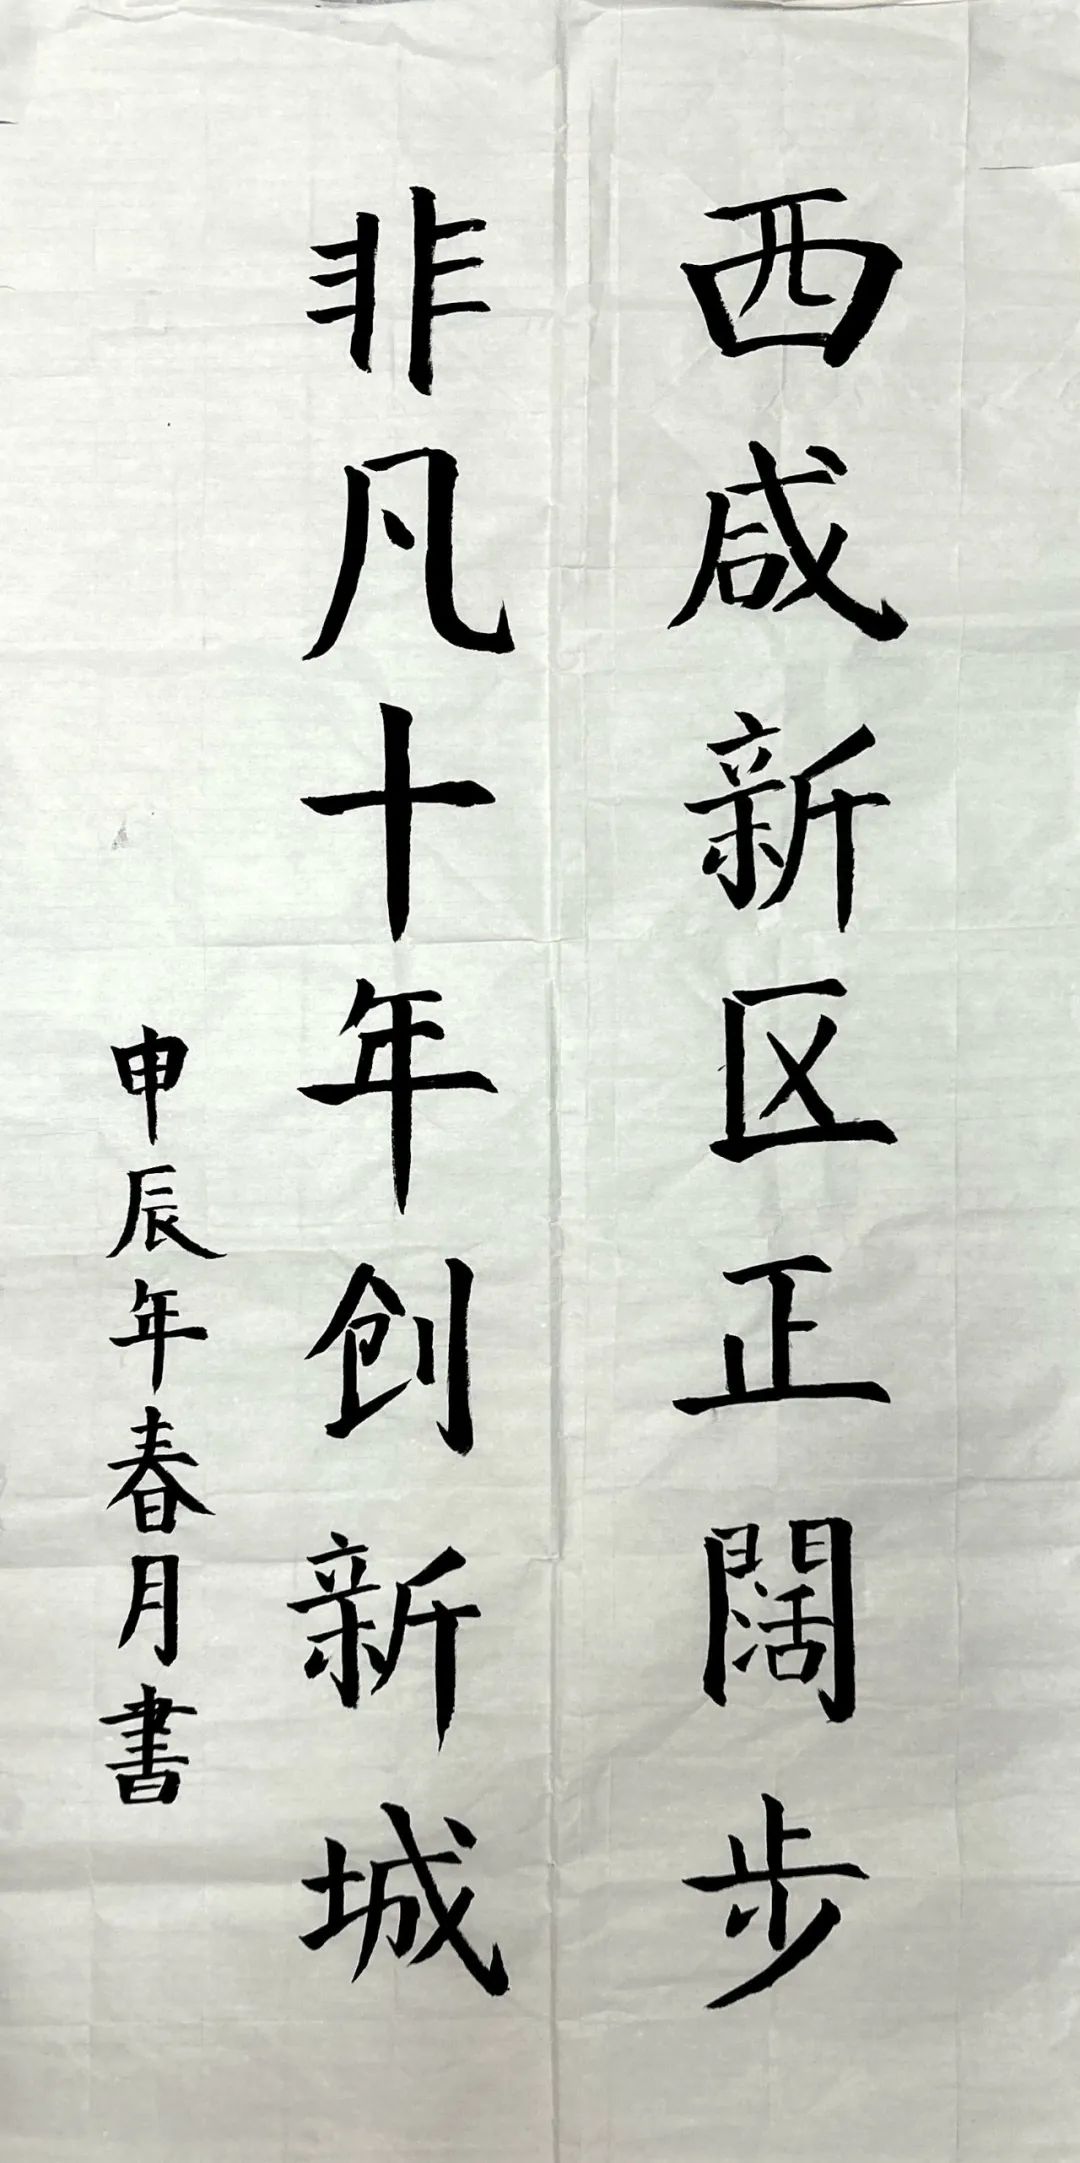 西咸新区正闊步
非凡十年创新城
申辰年春月書